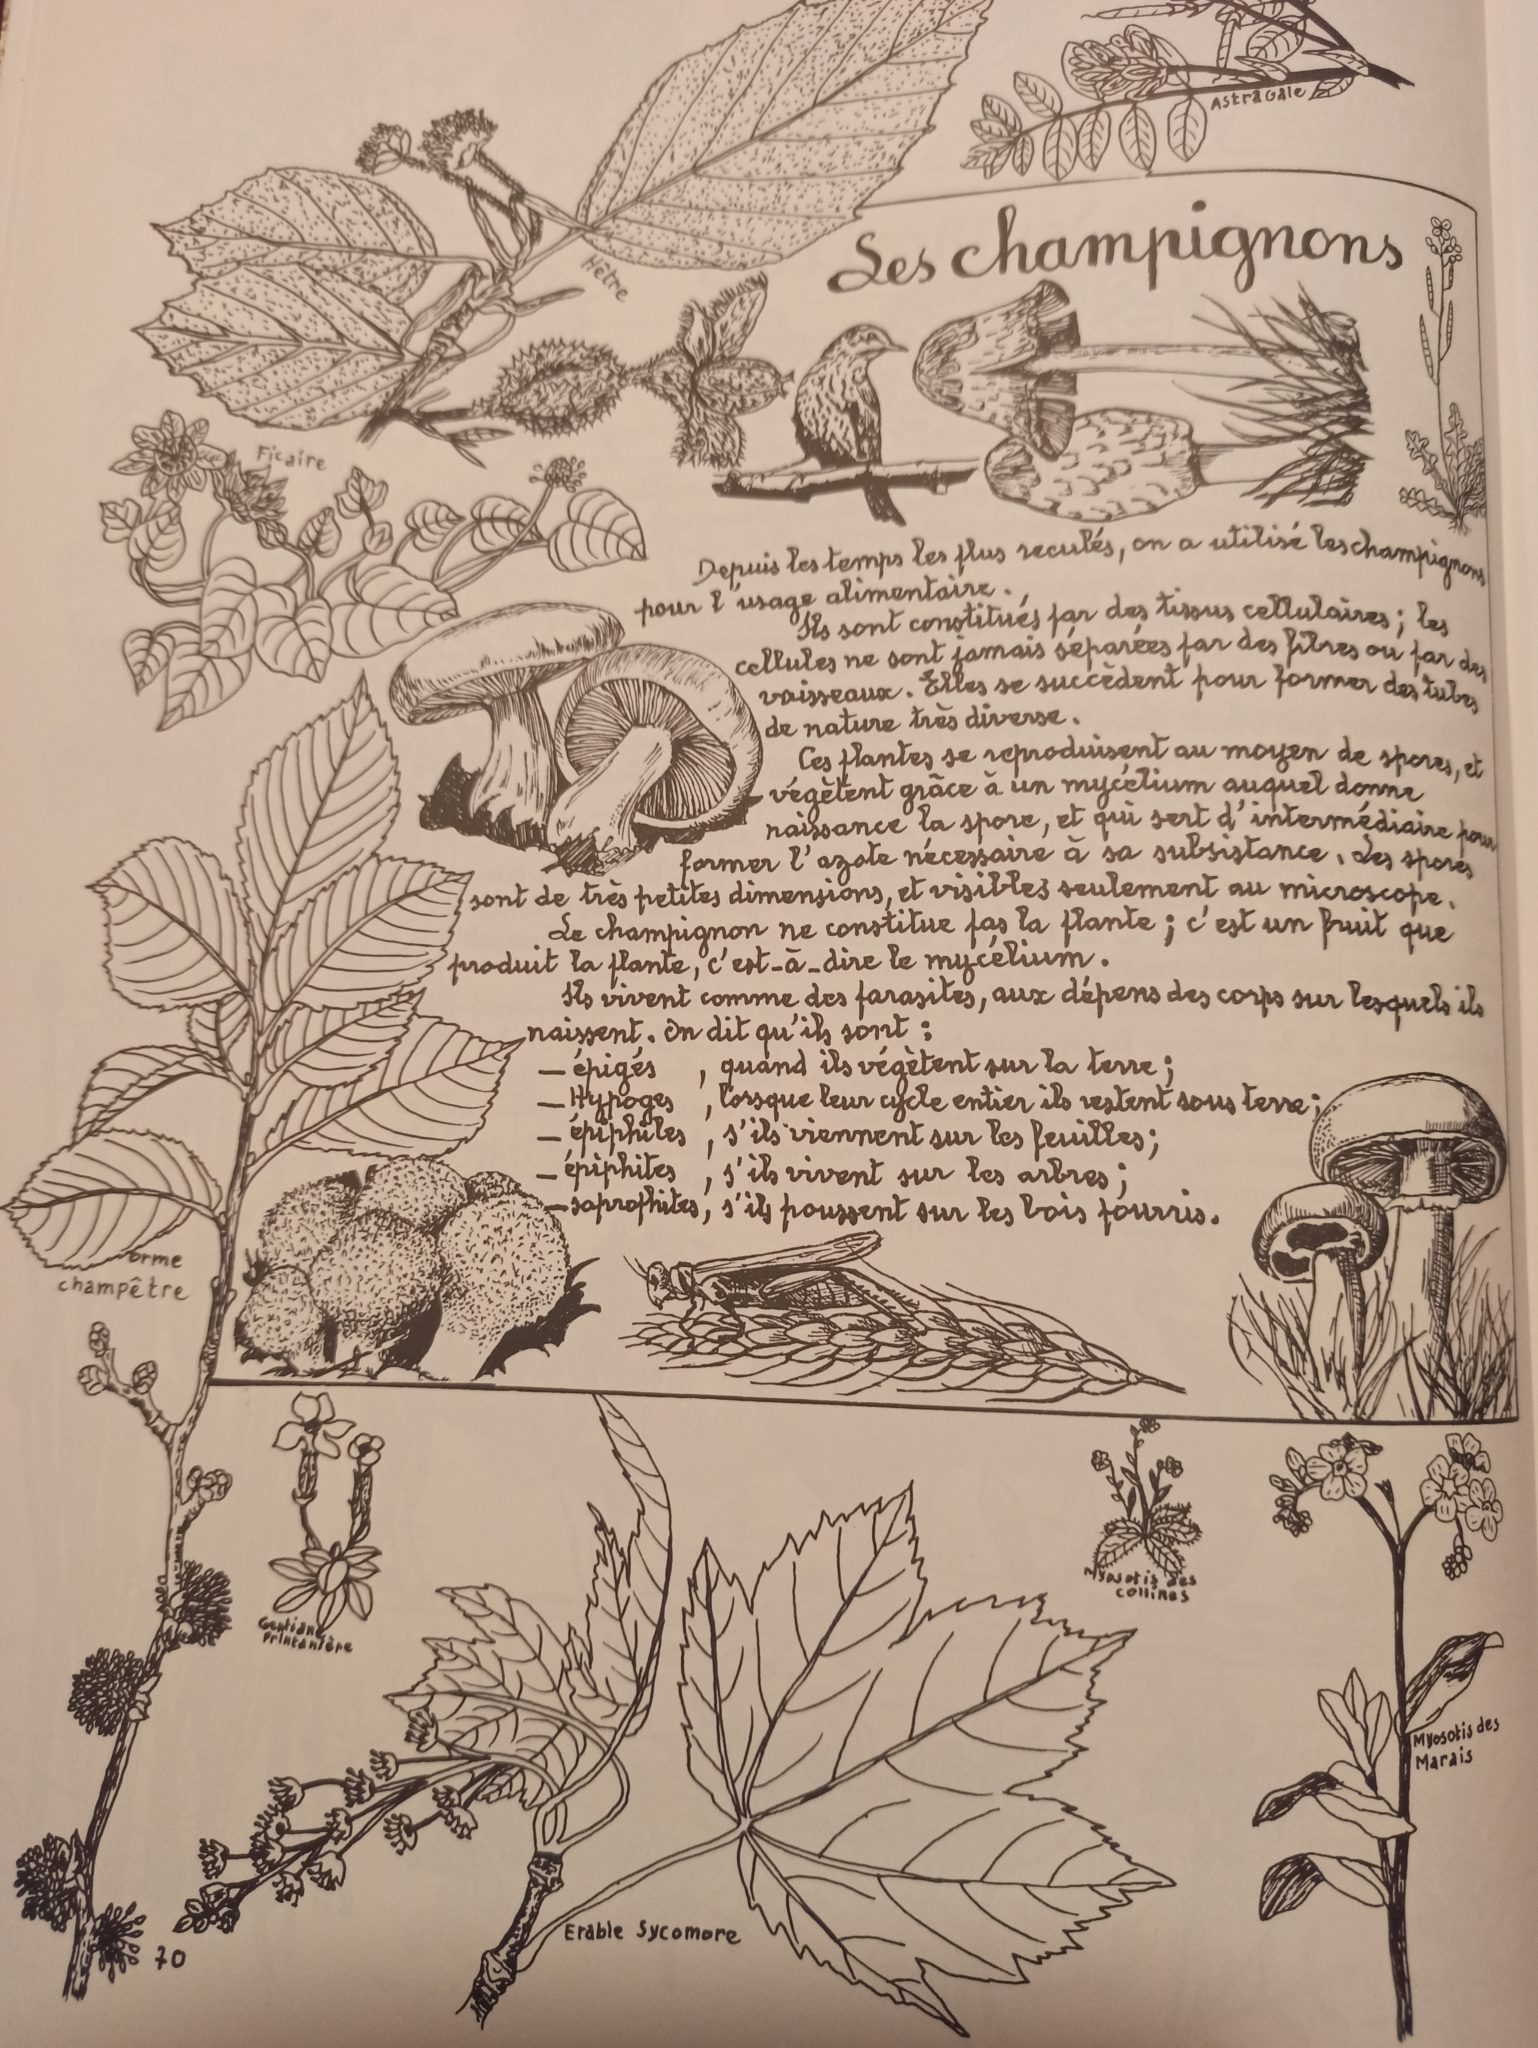 Astragale
Les champignons
Hêtre
Ficaire
Depuis les temps les plus reculés, on a utilisé les champignons
pour l'usage alimentaire.
Ils sont constitués par des tissus cellulaires ; les
cellules ne sont jamais séparées par des fibres ou par des
vaisseaux. Elles se succèdent pour former des tubes
de nature très diverse.
Ces plantes se reproduisent au moyen de spores, et
végètent grâce à un mycélium auquel donne
naissance la spore, et qui sert d'intermédiaire pour
former l'azote nécessaire à sa subsistance. Les spores
sont de très petites dimensions, et visibles seulement au microscope.
Le champignon ne constitue pas la plante ; c'est un fruit que
produit la plante, c'est-à-dire le mycélium.
Ils vivent comme des parasites, aux dépens des corps sur lesquels ils
naissent. On dit qu'ils sont :
- épigés , quand ils végètent sur la terre ;
- Hypoges , lorsque leur cycle entier ils restent sous terre ;
- épiphiles , s'ils viennent sur les feuilles ;
- épiphites , s'ils vivent sur les arbres ;
- saprophites, s'ils poussent sur les bois pourris.
orme
champêtre
Gentiane
Printanière
Myosotis des
collines
Myosotis des
Marais
Erable Sycomore
70